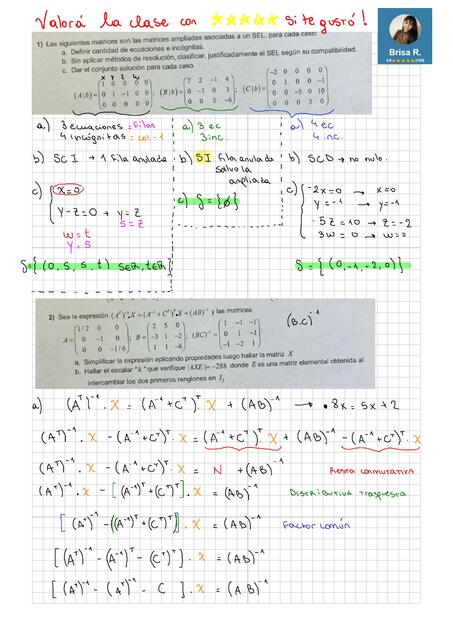 Valorá la clase con ⭐⭐⭐⭐⭐ si te gustó!
Brisa R.
1) Las siguientes matrices son las matrices ampliadas asociadas a un SEL, para cada caso:
a. Definir cantidad de ecuaciones e incógnitas.
b. Sin aplicar métodos de resolución, clasificar, justificadamente el SEL según su compatibilidad.
c. Dar el conjunto solución para cada caso.
x y z w
(A|b) = (1 0 0 0 0 / 0 1 -1 0 0 / 0 0 0 0 0); (B|b) = (7 2 -1 4 / 0 -1 0 3 / 0 0 0 -6); (C|b) = (-2 0 0 0 0 / 0 1 0 0 -1 / 0 0 -5 0 10 / 0 0 0 3 0)
a) 3 ecuaciones = filas
4 incógnitas = col - 1
a) 3 ec
3 inc.
a) 4 ec
4 inc.
b) SCI → 1 fila anulada
b) SI fila anulada
salvo la
ampliada
b) SCD → no nulo.
c) x = 0
y - z = 0 → y = z
s = z
w = t
y = s
S = { (0, s, s, t) s∈R, t∈R }
c) S = {∅}
c) -2x = 0 → x = 0
y = -1 → y = -1
-5z = 10 → z = -2
3w = 0 → w = 0
S = { (0, -1, -2, 0) }
2) Sea la expresión (Aᵀ)⁻¹.X = (A⁻¹ + Cᵀ)ᵀ.X + (AB)⁻¹ y las matrices
A = (1/2 0 0 / 0 -1 0 / 0 0 -1/6); B = (2 5 0 / -3 1 -2 / 1 1 -6); (BC)⁻¹ = (1 -1 -1 / 0 1 -1 / -1 -2 1)
(B.C)⁻¹
a. Simplificar la expresión aplicando propiedades luego hallar la matriz X
b. Hallar el escalar "k" que verifique |kXE| = -288 donde E es una matriz elemental obtenida al
intercambiar los dos primeros renglones en I₃
a) (Aᵀ)⁻¹ . X = (A⁻¹ + Cᵀ)ᵀ . X + (AB)⁻¹ → 8x = 5x + 2
(Aᵀ)⁻¹ . X - (A⁻¹ + Cᵀ)ᵀ . X = (A⁻¹ + Cᵀ)ᵀ . X + (AB)⁻¹ - (A⁻¹ + Cᵀ)ᵀ . X
(Aᵀ)⁻¹ . X - (A⁻¹ + Cᵀ)ᵀ . X = N + (AB)⁻¹ Resta conmutativa
(Aᵀ)⁻¹ . X - [(A⁻¹)ᵀ + (Cᵀ)ᵀ] . X = (AB)⁻¹ Distributiva traspuesta
[(Aᵀ)⁻¹ - ((A⁻¹)ᵀ + (Cᵀ)ᵀ)] . X = (AB)⁻¹ Factor común
[(Aᵀ)⁻¹ - (A⁻¹)ᵀ - (Cᵀ)ᵀ] . X = (AB)⁻¹
[(Aᵀ)⁻¹ - (Aᵀ)⁻¹ - C ] . X = (A.B)⁻¹